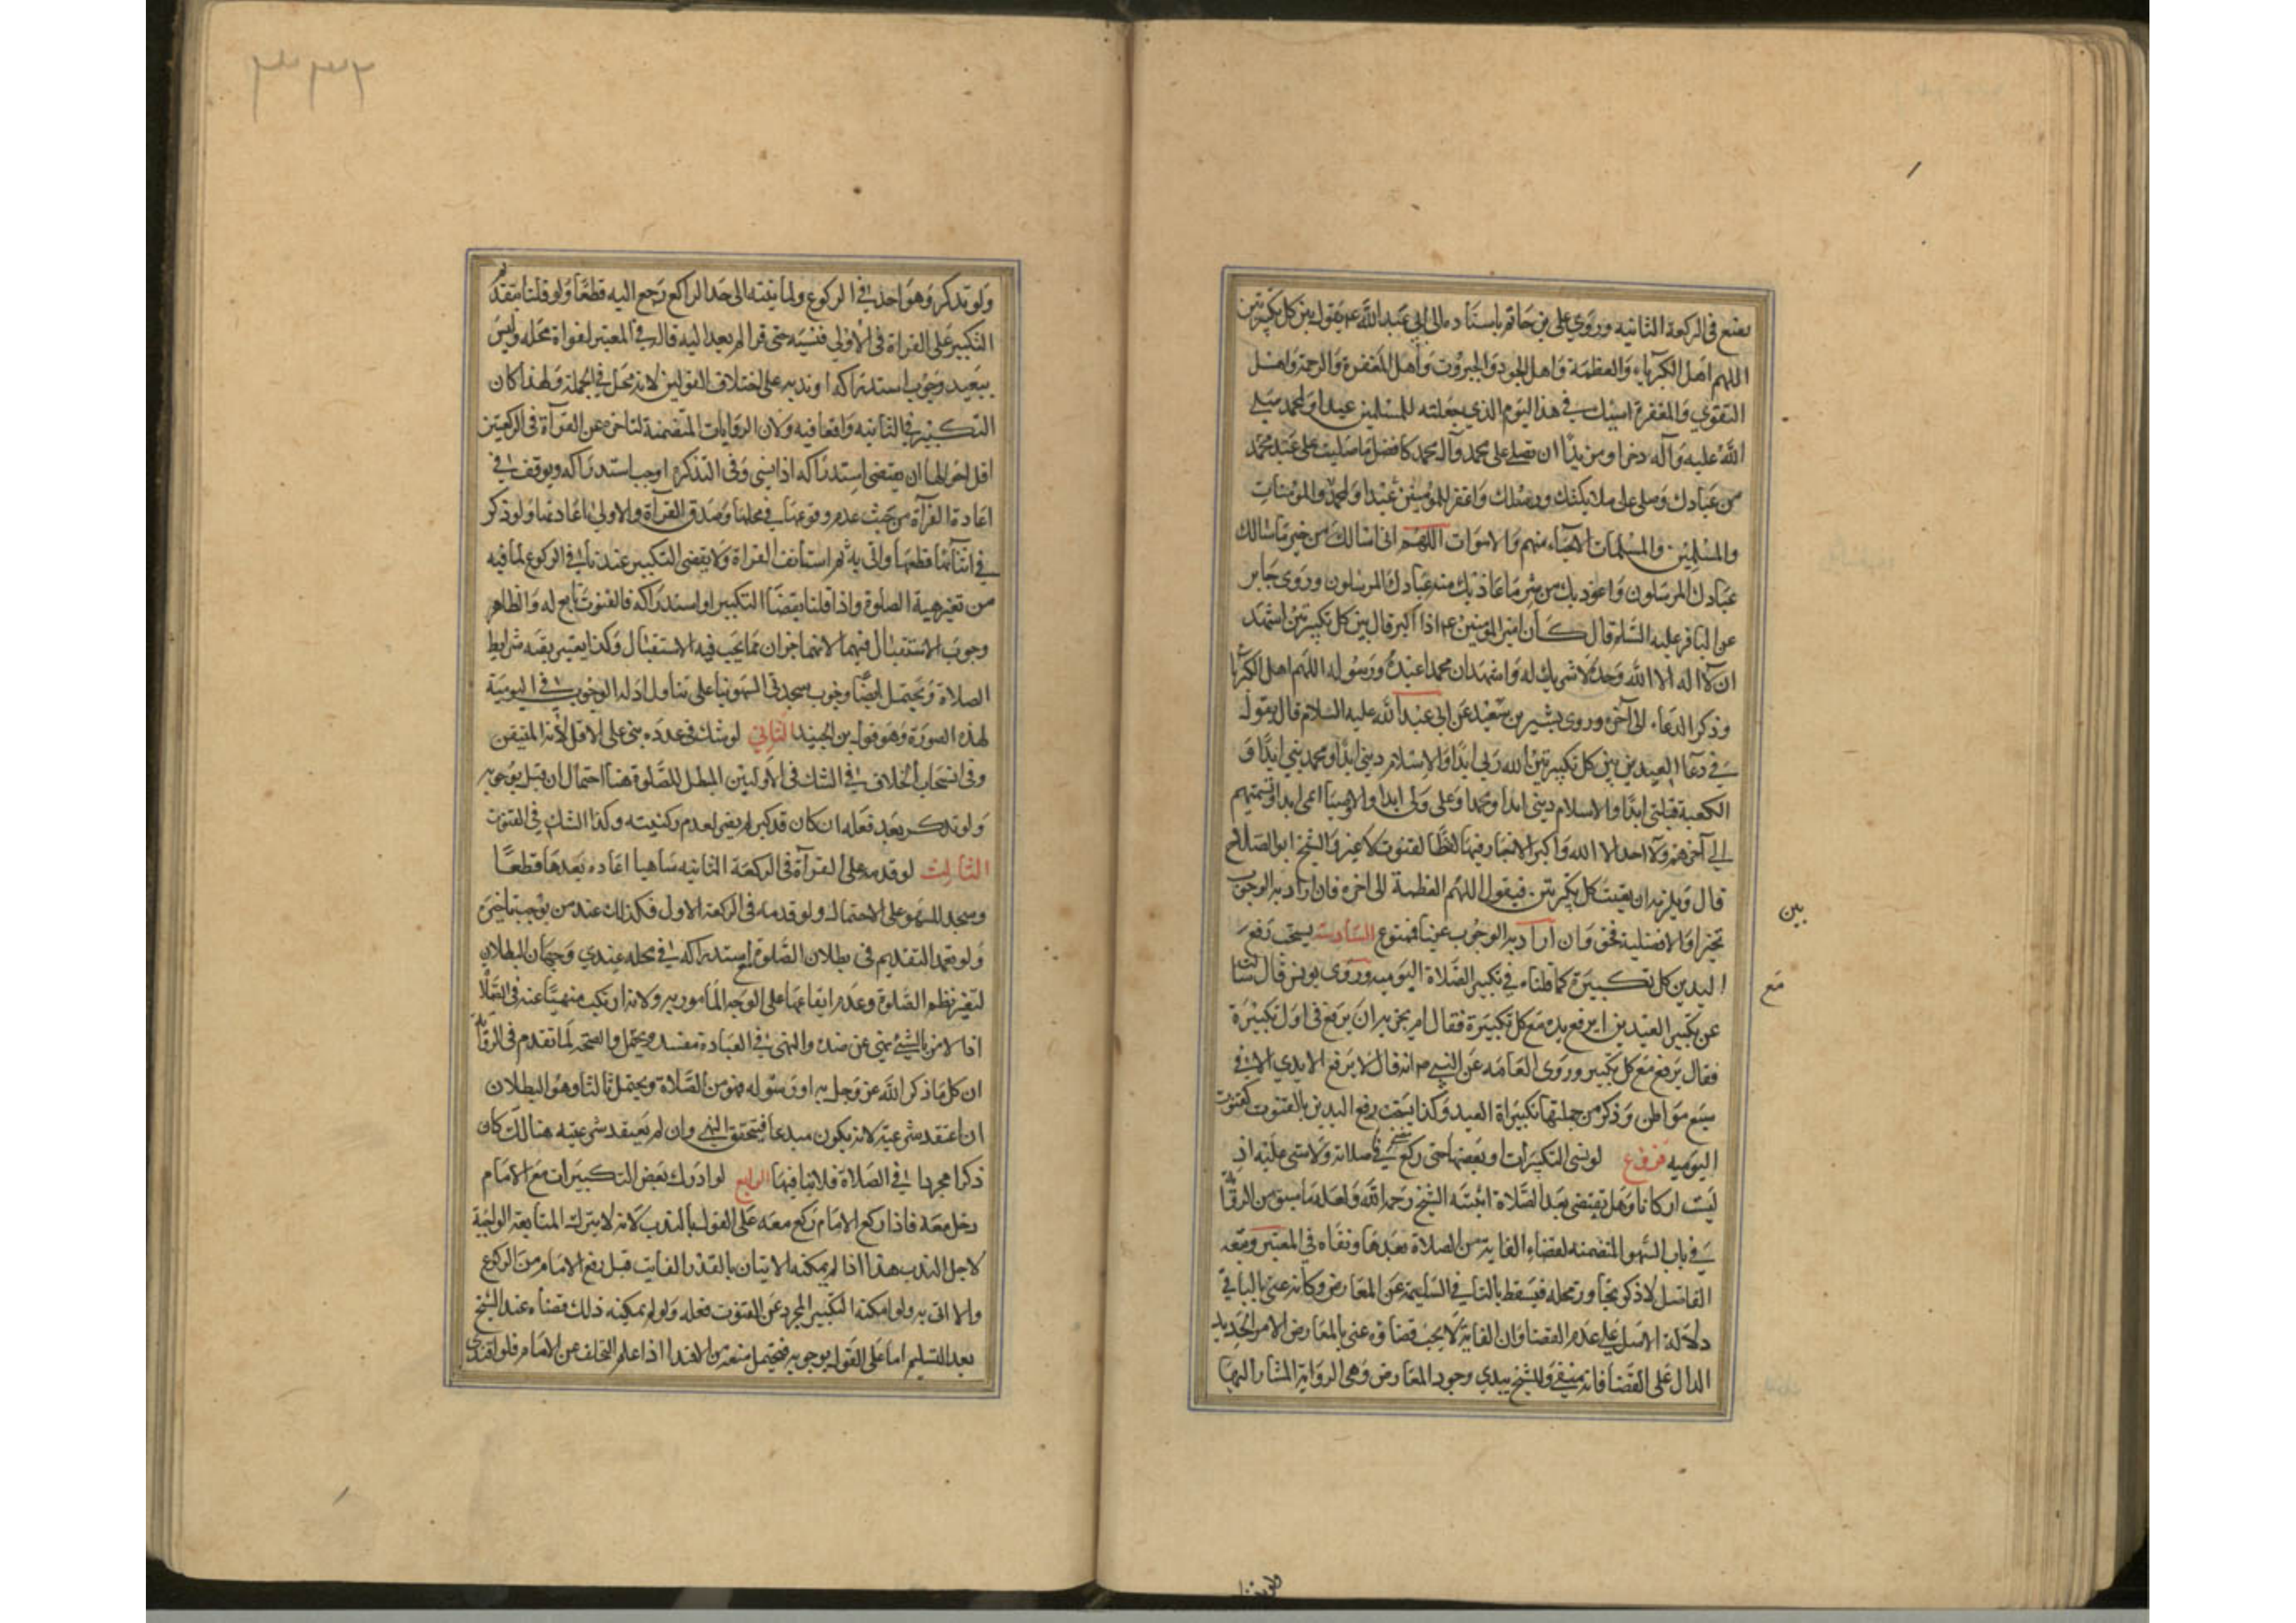 يصنع في الركعة الثانيه وروي علي بن حاتم باسناده الى ابي عبد الله عم يقول بين كل تكبيرتين
اللهم اهل الكبرياء والعظمة واهل الجود والجبروت واهل المغفرة والرحمة واهل
التقوي والمغفرة اسئلك في هذا اليوم الذي جعلته للمسلمين عيدا ولمحمد صلي
الله عليه وآله ذخرا ومزيدا ان تصلي على محمد وآل محمد كافضل ما صليت على عبد
من عبادك وصلى على ملائكتك ورسلك واغفر للمؤمنين والمؤمنات
والمسلمين والمسلمات الاحياء منهم والاموات اللهم اني اسالك من خير ما سالك
عبادك المرسلون واعوذ بك من شر ما عاذ بك منه عبادك المرسلون وروى جابر
عن الباقر عليه السلم قال كان امير المؤمنين عم اذا كبر قال بين كل تكبيرتين اشهد
ان لا اله الا الله وحده لا شريك له واشهد ان محمدا عبده ورسوله اللهم اهل الكبريا
وذكر الدعاء الى آخره وروى بشير بن سعيد عن ابي عبد الله عليه السلام قال يقول
في دعا العيدين بين كل تكبيرتين الله ربي ابدا والاسلام ديني ابدا ومحمد نبيي ابدا و
الكعبة قبلتي ابدا والاسلام ديني ابدا ومحمدا وعلى ولي ابدا والاوصيا ابدا وتسميتهم
الي آخرهم ولا احد الا الله والشيخ ابو الصلاح
قال ويلزمه ان يقنت كل تكبيرتين فيقول اللهم العظمة الى اخره فان اراد به الوجوب
تخيرا والافضلية فحق وان اراد به الوجوب عينا فممنوع السادسة يستحب رفع
اليدين كل تكبيرة كما قلناه في تكبير الصلاة اليوميه وروى يونس قال سالته
عن تكبير العيدين ايرفع يده مع كل تكبيرة فقال ام يجزيه ان يرفع في اول تكبيرة
فقال يرفع مع كل تكبير وروى العامه عن النبي ص انه قال لا يرفع الايدي الا في
سبع مواطن وذكر من جملتها تكبيراة العيد وكذا يستحب رفع اليدين بالقنوت كقنوت
اليوميه فروع لو نسي التكبيرات او بعضها حتى ركع مضى في صلاته ولا شي عليه اذ
ليست اركانا وهل تقتضى بعد الصلاة اثبته الشيخ رحمه الله ولعله ما سبق من الرواية
في باب السهو المتضمنه لقضاء الفايت من الصلاة بعدها ونفاه في المعتبر وتبعه
الفاضل لانه ذكر تجاوز محله فيسقط بالنافي السليم عن المعارض وكانه عنى بالنافي
دلالة الاصل على عدم القضا وان الفايت لا يجب قضاؤه وعنى بالمعارض الامر الجديد
الدال على القضا فانه منتف وللشيخ يبدي وجود المعارض وهي الرواية المشار اليها
بين
مع
ولو تذكر وهو آخذ في الركوع ولما ينته الى حد الراكع رجع اليه قطعا ولو قلنا بتقدم
التكبير على القراة في الاولى فنسيه حتى قرا لم يعد اليه قاله في المعتبر لفواة محله وليس
ببعيد وجوب استدراكه او ندبه على اختلاف القولين لانه محل في الجملة ولهذا كان
التكبير في الثانيه واقعا فيه ولان الروايات المتضمنة لتاخره عن القرآة في الركعتين
اقل احوالها ان يقتضي استدراكه اذا نسي وفى التذكرة اوجب استدراكه وتوقف في
اعادة القرآة من حيث عدم وقوعها في محلها وصدق القرآة والاولى اعادتها ولو ذكر
في اثنائها قطعها واتى به ثم استانف القراة ولا يقضى التكبير عندنا في الركوع لما فيه
من تغير هيئة الصلوة واذا قلنا بقضا التكبير او استدراكه فالقنوت تابع له والظاهر
وجوب الاستقبال فيهما لانهما جزءان مما يجب فيه الاستقبال وكذا يعتبر بقية شرايط
الصلاة ويحتمل ايضا وجوب سجدتي السهو بنا على تناول ادلة الوجوب في اليومية
لهذه الصورة وهو قول بن الجنيد الثاني لو شك في عدده بنى على الاقل لانه المتيقن
وفى انسحاب الخلاف في الشك في الاوليين المبطل للصلوة هنا احتمال ان قيل بوجوبه
ولو تذكر بعد فعله ان كان قد كبر لم يضر لعدم ركنيته وكذا الشك في القنوت
الثالث لو قدمه على القرآة في الركعة الثانيه ساهيا اعاده بعدها قطعا
وسجد للسهو على الاحتمال ولو قدمه في الركعة الاولى فكذلك عند من يوجب تاخيره
ولو تعمد التقديم ففي بطلان الصلوة ام استدراكه في محله عندي وجهان البطلان
لتغير نظم الصلوة وعدم ايقاعها على الوجه المامور به ولانه ارتكب منهيا عنه في الصلاة
اذا الامر بالشئ نهي عن ضده والنهى في العبادة مفسد ويحتمل والصحة لما تقدم في الرواية
ان كل ما ذكر الله عز وجل به او رسوله فهو من الصلاة ويحتمل ثالثا وهو البطلان
ان اعتقد شرعيته لانه يكون مبدعا فيتحقق النهي وان لم يعتقد شرعيته هنالك كان
ذكرا مجردا في الصلاة فلا ينافيها الرابع لو ادرك بعض التكبيرات مع الامام
دخل معه فاذا ركع الامام ركع معه على القول بالندب لانه لا يترك المتابعة الواجبة
لاجل الندب هذا اذا لم يمكنه الاتيان بالقدر الفايت قبل رفع الامام من الركوع
والا اتى به ولو امكنه التكبير المجرد عن القنوت فعله ولو لم يمكنه ذلك قضاه عند الشيخ
بعد التسليم اما على القول بوجوبه فيحتمل منعه من الاقتدا اذا علم التخلف عن الامام فلو اقتدى